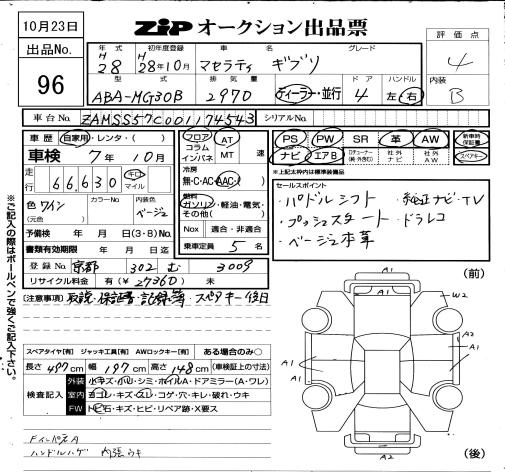 10月23日
ZIP オークション出品票
評価点
4
内装
B
出品No.
96
年式 初年度登録 車名 グレード
H28 H28年10月 マセラティ ギブリ
型式 排気量 ドア ハンドル
ABA-MG30B 2970 ディーラー・並行 4 左・右
車台No. ZAMSS57C001174543 シリアルNo.
車歴 自家用・レンタ・( )
車検 7年10月
走行 66,630 キロ マイル
色 ワイン (元色) カラーNo. 内装色 ベージュ
予備検 年 月 日(3・8)No.
書類有効期限 年 月 日迄
登録No. 京都 302 む 3009
リサイクル料金 有(¥27360) 未
フロア コラム インパネ AT MT 速
冷房 無・C・AC・AAC
燃料 ガソリン・軽油・電気・その他( )
Nox 適合・非適合
乗車定員 5名
PS PW SR 革 AW 新車時保証書
ナビ エアB 社外ナビ 社外AW スペアキー
※上記太枠内は標準装備品
セールスポイント
・パドルシフト ・純正ナビ・TV
・プッシュスタート ・ドラレコ
・ベージュ本革
[注意事項] 取説・保証書・記録簿・スペアキー後日
※ご記入の際はボールペンで強くご記入下さい。
スペアタイヤ[有] ジャッキ工具[有] AWロックキー[有] ある場合のみ○
長さ497cm 幅197cm 高さ148cm (車検証上の寸法)
検査記入
外装 小キズ・凹・シミ・ホイルA・ドアミラー(A・ワレ)
室内 ヨゴレ・キズ・スレ・コゲ・穴・キレ・破れ・ウキ
FW トビ石・キズ・ヒビ・リペア跡・X要ス
Fインパネ A
ハンドルハゲ 内張ウキ
(前)
A1
W2
A1
A2
A1
A1
A1
A1
A2
(後)